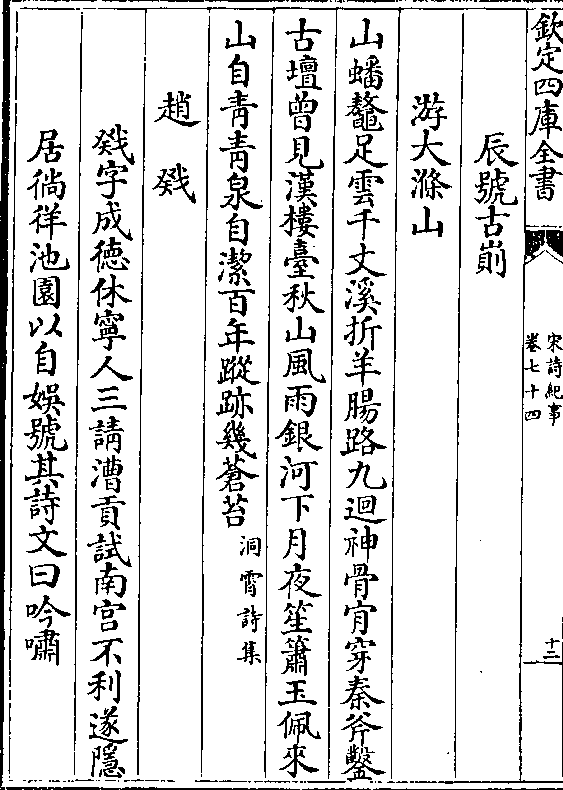 欽定四庫全書
宋詩紀事
卷七十四
十三
辰號古
游大滌山
山蟠鼇足雲千丈溪折羊腸路九迴神骨肎穿秦斧鑿
古壇曾見漢樓臺秋山風雨銀河下月夜笙簫玉佩來
山自青青泉自潔百年蹤跡幾蒼苔洞霄詩集
趙戣
戣字成德休寧人三請漕貢試南宫不利遂隱
居徜徉池園以自娛號其詩文曰吟嘯